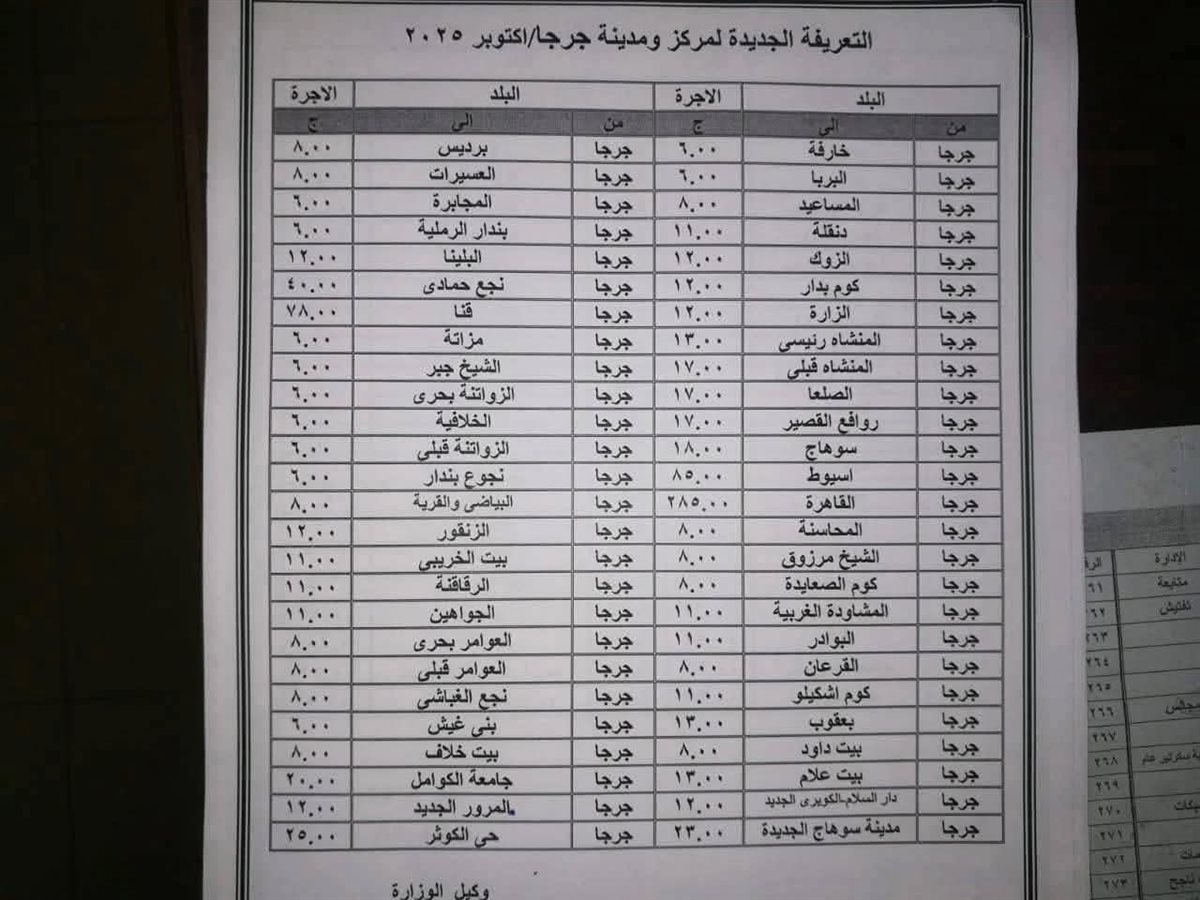 التعريفة الجديدة لمركز ومدينة جرجا/اكتوبر ٢٠٢٥
البلد الاجرة البلد الاجرة
من الى ج من الى ج
جرجا خارفة ٦.٠٠ جرجا برديس ٨.٠٠
جرجا البربا ٦.٠٠ جرجا العسيرات ٨.٠٠
جرجا المساعيد ٨.٠٠ جرجا المجابرة ٦.٠٠
جرجا دنقلة ١١.٠٠ جرجا بندار الرملية ٦.٠٠
جرجا الزوك ١٢.٠٠ جرجا البلينا ١٢.٠٠
جرجا كوم بدار ١٢.٠٠ جرجا نجع حمادى ٤٠.٠٠
جرجا الزارة ١٢.٠٠ جرجا قنا ٧٨.٠٠
جرجا المنشاه رئيسى ١٣.٠٠ جرجا مزاتة ٦.٠٠
جرجا المنشاه قبلى ١٧.٠٠ جرجا الشيخ جبر ٦.٠٠
جرجا الصلعا ١٧.٠٠ جرجا الزواتنة بحرى ٦.٠٠
جرجا روافع القصير ١٧.٠٠ جرجا الخلافية ٦.٠٠
جرجا سوهاج ١٨.٠٠ جرجا الزواتنة قبلى ٦.٠٠
جرجا اسيوط ٨٥.٠٠ جرجا نجوع بندار ٦.٠٠
جرجا القاهرة ٢٨٥.٠٠ جرجا البياضى والقرية ٨.٠٠
جرجا المحاسنة ٨.٠٠ جرجا الزنقور ١٢.٠٠
جرجا الشيخ مرزوق ٨.٠٠ جرجا بيت الخريبى ١١.٠٠
جرجا كوم الصعايدة ٨.٠٠ جرجا الرقاقنة ١١.٠٠
جرجا المشاودة الغربية ١١.٠٠ جرجا الجواهين ١١.٠٠
جرجا البوادر ١١.٠٠ جرجا العوامر بحرى ٨.٠٠
جرجا القرعان ٨.٠٠ جرجا العوامر قبلى ٨.٠٠
جرجا كوم اشكيلو ١١.٠٠ جرجا نجع الغباشى ٨.٠٠
جرجا بعقوب ١٣.٠٠ جرجا بنى غيش ٦.٠٠
جرجا بيت داود ٨.٠٠ جرجا بيت خلاف ٨.٠٠
جرجا بيت علام ١٣.٠٠ جرجا جامعة الكوامل ٢٠.٠٠
جرجا دار السلام-الكوبرى الجديد ١٢.٠٠ جرجا المرور الجديد ١٢.٠٠
جرجا مدينة سوهاج الجديدة ٢٣.٠٠ جرجا حى الكوثر ٢٥.٠٠
وكيل الوزارة
الادارة
متابعة ٢٦١
تفتيش ٢٦٢
٢٦٣
٢٦٤
٢٦٥
مجالس ٢٦٦
٢٦٧
سكرتير عام ٢٦٨
٢٦٩
٢٧٠
٢٧١
٢٧٢
٢٧٣